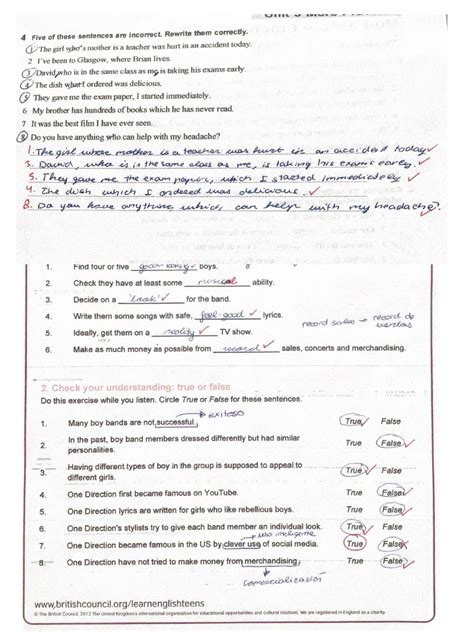 4 Five of these sentences are incorrect. Rewrite them correctly.
1 The girl who's mother is a teacher was hurt in an accident today.
2 I've been to Glasgow, where Brian lives.
3 David who is in the same class as me is taking his exams early.
4 The dish what I ordered was delicious.
5 They gave me the exam paper, I started immediately.
6 My brother has hundreds of books which he has never read.
7 It was the best film I have ever seen.
8 Do you have anything who can help with my headache?
1. The girl whose mother is a teacher was hurt in an accident today.
3. David, who is in the same class as me, is taking his exams early.
5. They gave me the exam paper, which I started immediately
4. The dish which I ordered was delicious.
8. Do you have anything which can help with my headache?
1. Find four or five good-looking boys.
2. Check they have at least some musical ability.
3. Decide on a "look" for the band.
4. Write them some songs with safe, feel-good lyrics.
record sales → record de ventas
5. Ideally, get them on a reality TV show.
6. Make as much money as possible from record sales, concerts and merchandising.
2. Check your understanding: true or false
Do this exercise while you listen. Circle True or False for these sentences.
exitoso
1. Many boy bands are not successful. True False
2. In the past, boy band members dressed differently but had similar personalities. True False
3. Having different types of boy in the group is supposed to appeal to different girls. True False
4. One Direction first became famous on YouTube. True False
5. One Direction lyrics are written for girls who like rebellious boys. True False
6. One Direction's stylists try to give each band member an individual look. True False
uso inteligente
7. One Direction became famous in the US by clever use of social media. True False
8. One Direction have not tried to make money from merchandising. True False
comercialización
www.britishcouncil.org/learnenglishteens
© The British Council, 2012 The United Kingdom's international organisation for educational opportunities and cultural relations. We are registered in England as a charity.